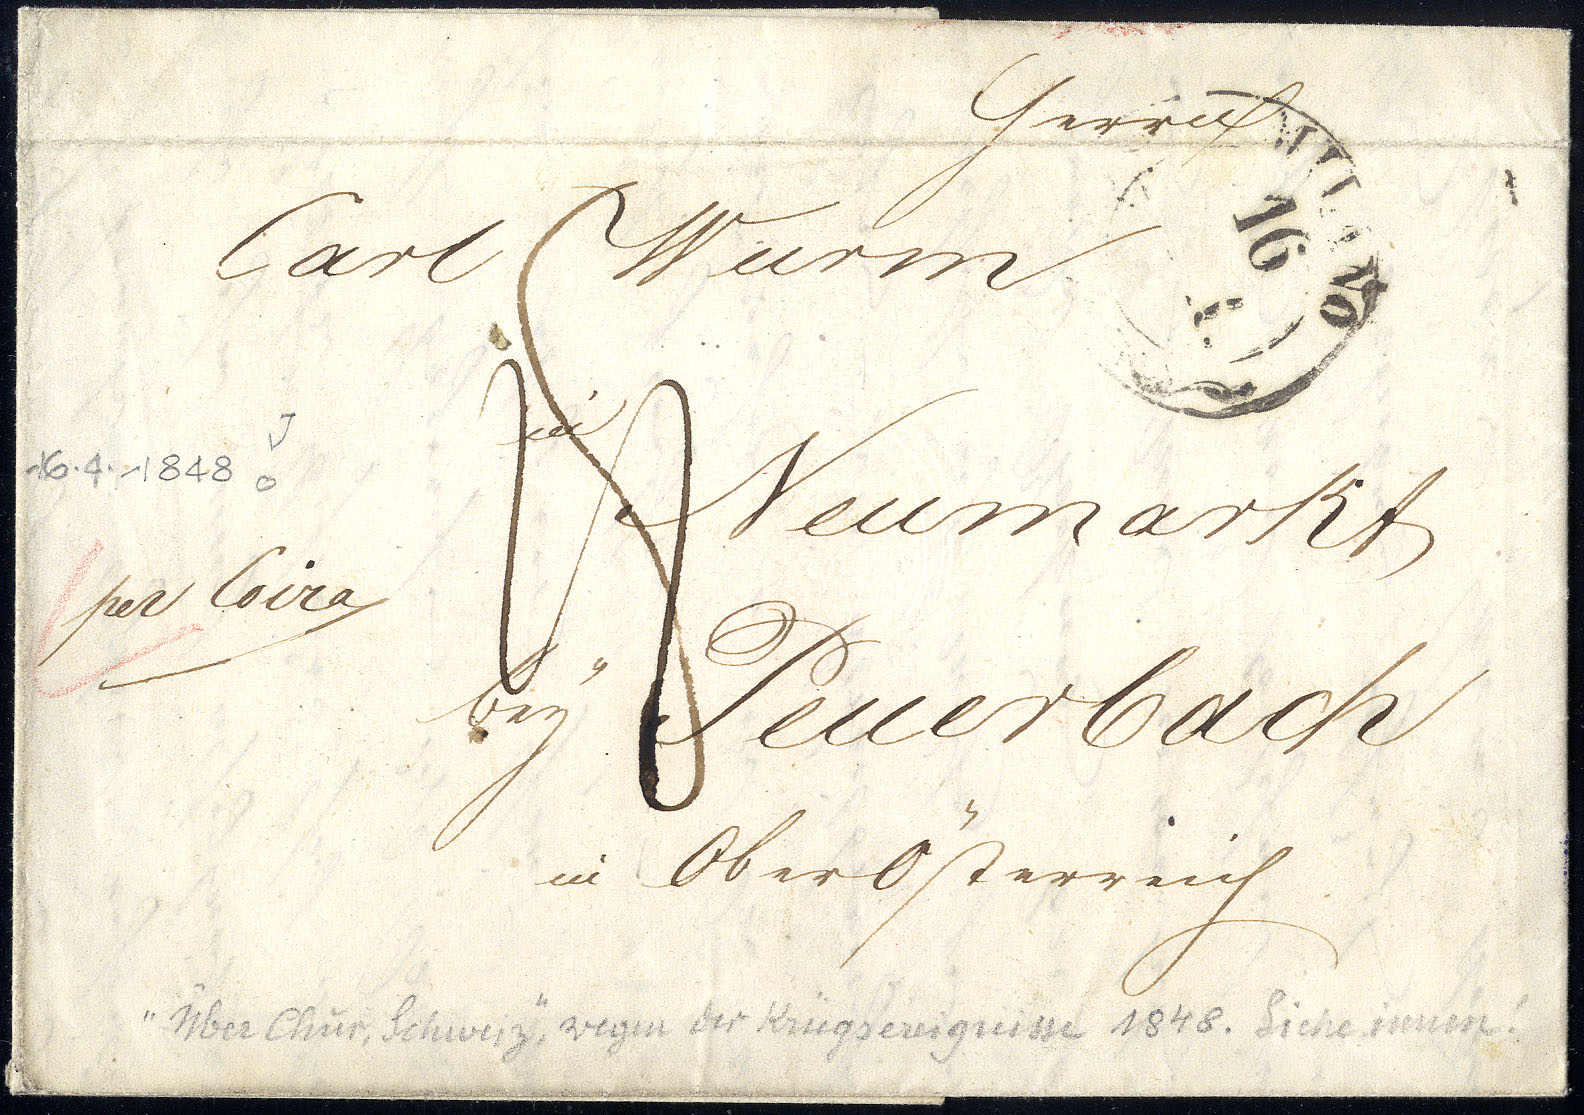 Herrn
MILANO
16
Carl Wurm
in
Neumarkt
16.4.1848
per Coira
bey Peuerbach
in Ober Österreich
"Über Chur, Schweiz", wegen der Kriegsereignisse 1848. Siehe innen!